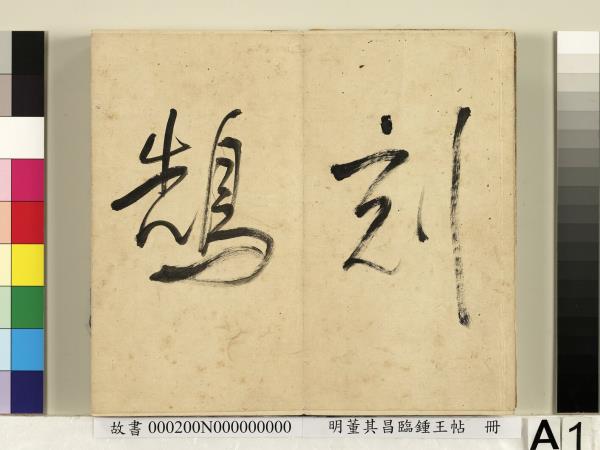 刻
鵠
故書 000200N000000000 明董其昌臨鍾王帖 冊
A 1